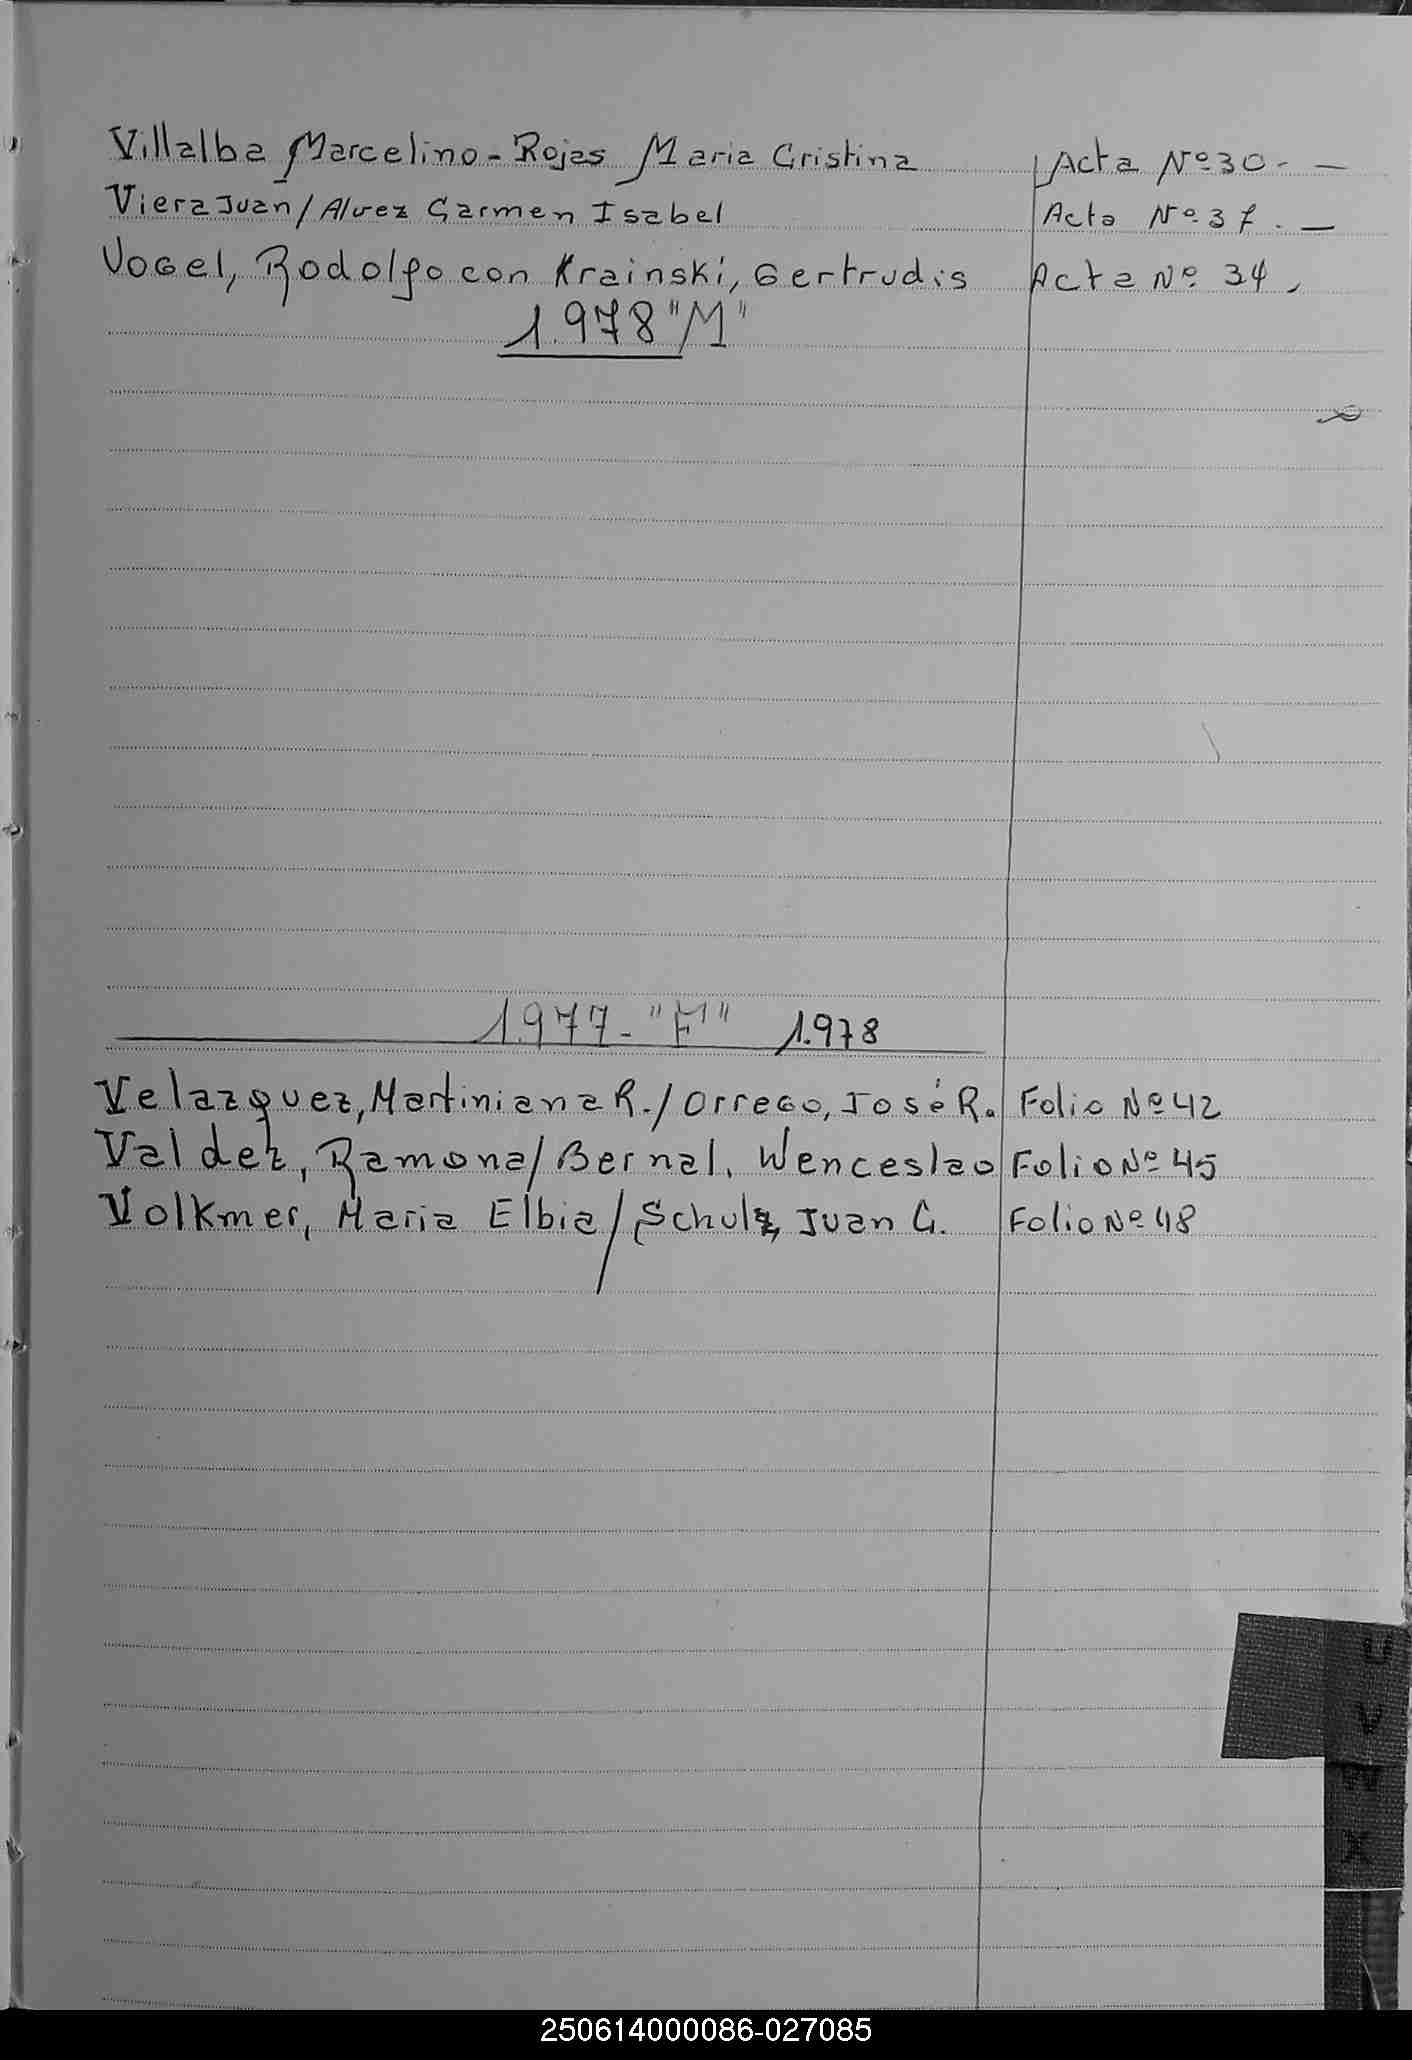 Villalba Marcelino - Rojas Maria Cristina Acta Nº 30 - —
Viera Juan / Alvez Carmen Isabel Acta Nº 37 . —
Vogel, Rodolfo con Krainski, Gertrudis Acta Nº 34 ,
1.978 "M"
1.977 - "F" 1.978
Velazquez, Martiniana R. / Orrego, José R. Folio Nº 42
Valdez, Ramona / Bernal, Wenceslao Folio Nº 45
Volkmer, Maria Elbia / Schulz, Juan C. Folio Nº 48
U
V
W
X
250614000086-027085